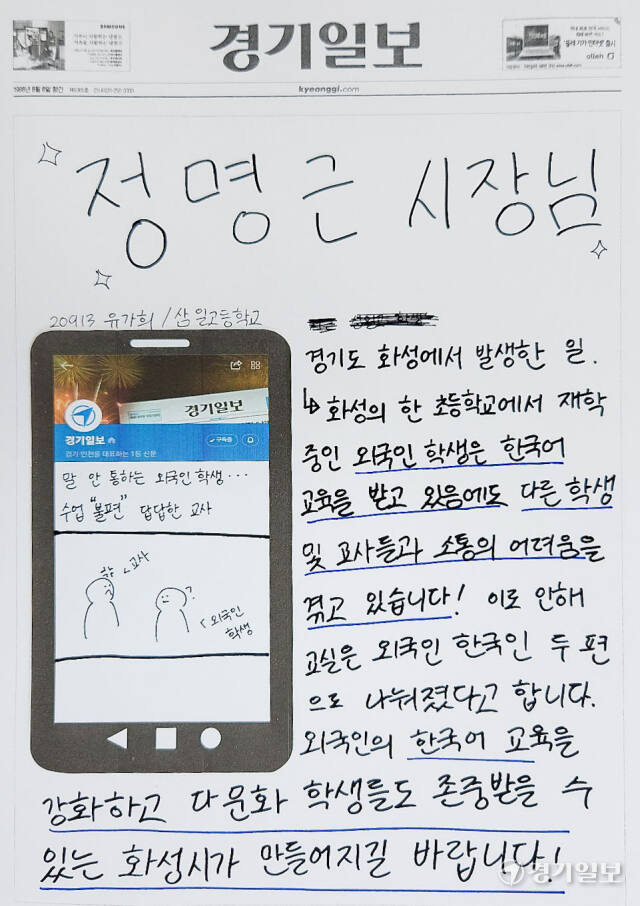 SAMSUNG
경기일보
olleh
kyeonggi.com
정명근 시장님
20913 유가희 / 삼일고등학교
경기일보
경기일보
경기·인천을 대표하는 1등 신문
구독중
말 안 통하는 외국인 학생...
수업 "불편" 답답한 교사
교사
?
외국인
학생
경기도 화성에서 발생한 일.
↳ 화성의 한 초등학교에서 재학
중인 외국인 학생은 한국어
교육을 받고 있음에도 다른 학생
및 교사들과 소통의 어려움을
겪고 있습니다! 이로 인해
교실은 외국인 한국인 두 편
으로 나눠졌다고 합니다.
외국인의 한국어 교육을
강화하고 다문화 학생들도 존중받을 수
있는 화성시가 만들어지길 바랍니다!
경기일보